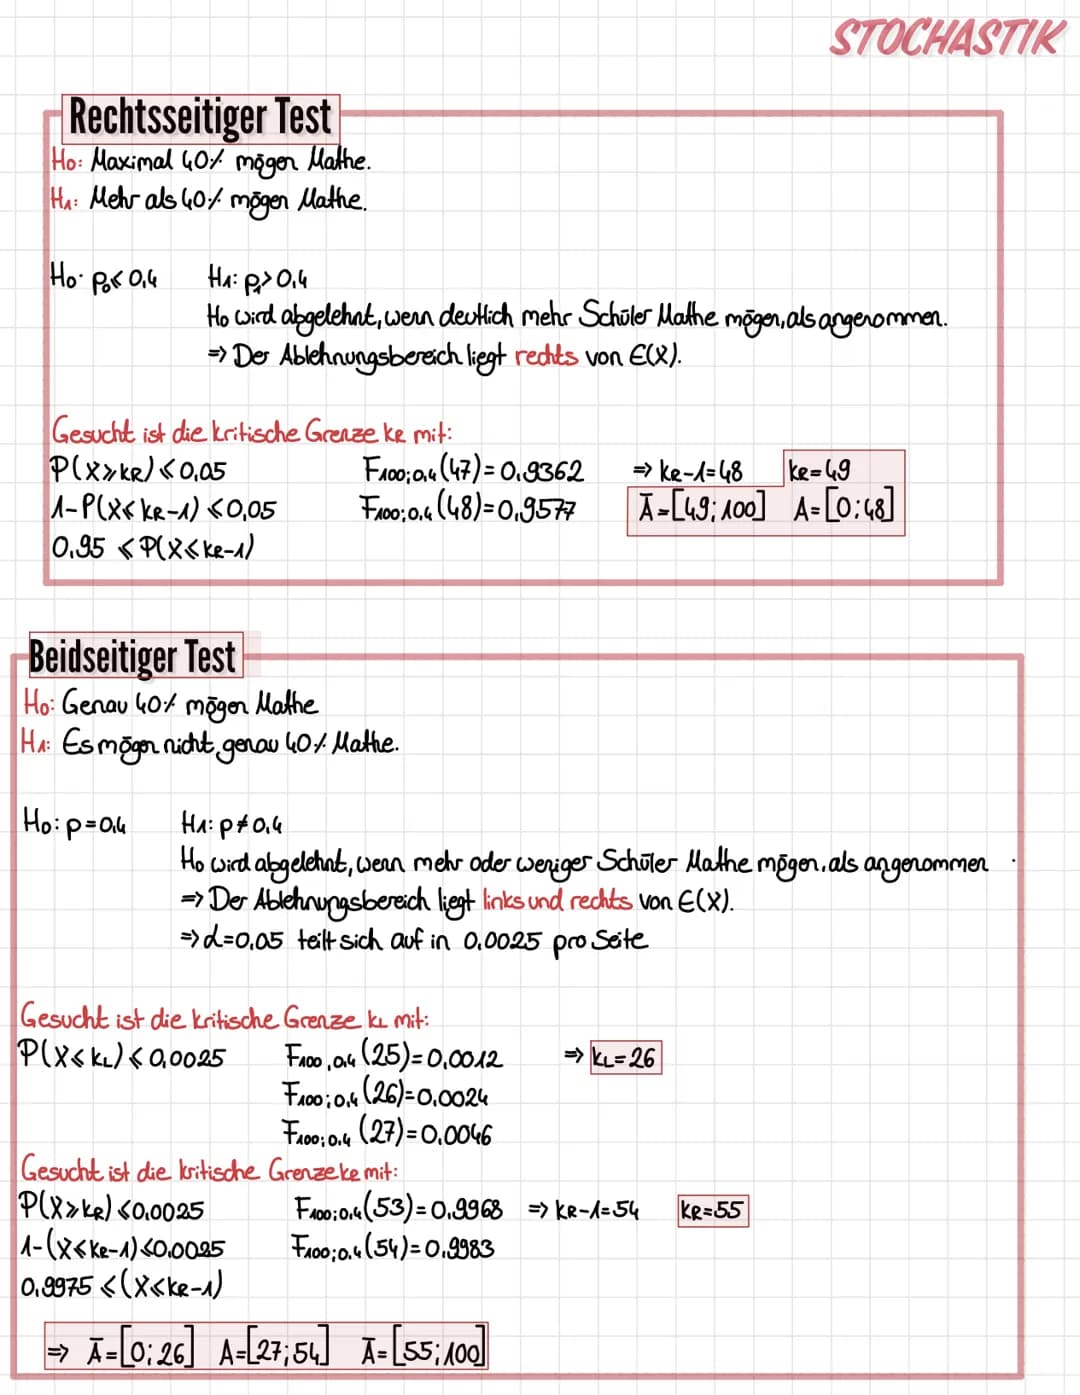 STOCHASTIK
Rechtsseitiger Test
H₀: Maximal 40% mögen Mathe.
H₁: Mehr als 40% mögen Mathe.
H₀: p₀≤0,4 H₁: p₁>0,4
H₀ wird abgelehnt, wenn deutlich mehr Schüler Mathe mögen, als angenommen.
⇒ Der Ablehnungsbereich liegt rechts von E(X).
Gesucht ist die kritische Grenze kR mit:
P(X≥kR)≤0,05 F₁₀₀;₀,₄(47)=0,9362 ⇒ kR-1=48 kR=49
1-P(X≤kR-1)≤0,05 F₁₀₀;₀,₄(48)=0,9577 Ā=[49;100] A=[0;48]
0,95≤P(X≤kR-1)
Beidseitiger Test
H₀: Genau 40% mögen Mathe
H₁: Es mögen nicht genau 40% Mathe.
H₀: p=0,4 H₁: p≠0,4
H₀ wird abgelehnt, wenn mehr oder weniger Schüler Mathe mögen, als angenommen
⇒ Der Ablehnungsbereich liegt links und rechts von E(X).
⇒ α=0,05 teilt sich auf in 0,0025 pro Seite
Gesucht ist die kritische Grenze kL mit:
P(X≤kL)≤0,0025 F₁₀₀;₀,₄(25)=0,0012 ⇒ kL=26
F₁₀₀;₀,₄(26)=0,0024
F₁₀₀;₀,₄(27)=0,0046
Gesucht ist die kritische Grenze kR mit:
P(X≥kR)≤0,0025 F₁₀₀;₀,₄(53)=0,9968 ⇒ kR-1=54 kR=55
1-(X≤kR-1)≤0,0025 F₁₀₀;₀,₄(54)=0,9983
0,9975≤(X≤kR-1)
⇒ Ā=[0;26] A=[27;54] Ā=[55;100]